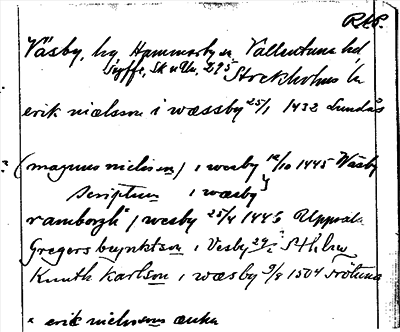 RAP.
Väsby, hg, Hammarby sn, Vallentuna hd
Styffe, Sk u Un, 295 Stockholms län
erik nielsson i wæssby 25/1 1432 Lundås
(magnus nielssen) i wesby 12/10 1445 Wäsby
scriptum i wæsby}
ramborgh* / wesby 25/4 1446 Uppsala
Gregers beynktson i Vesby 29/2 Sthlm
Knuth Karlson i wæsby 9/8 1504 Frötuna
* erik nielssons ænka